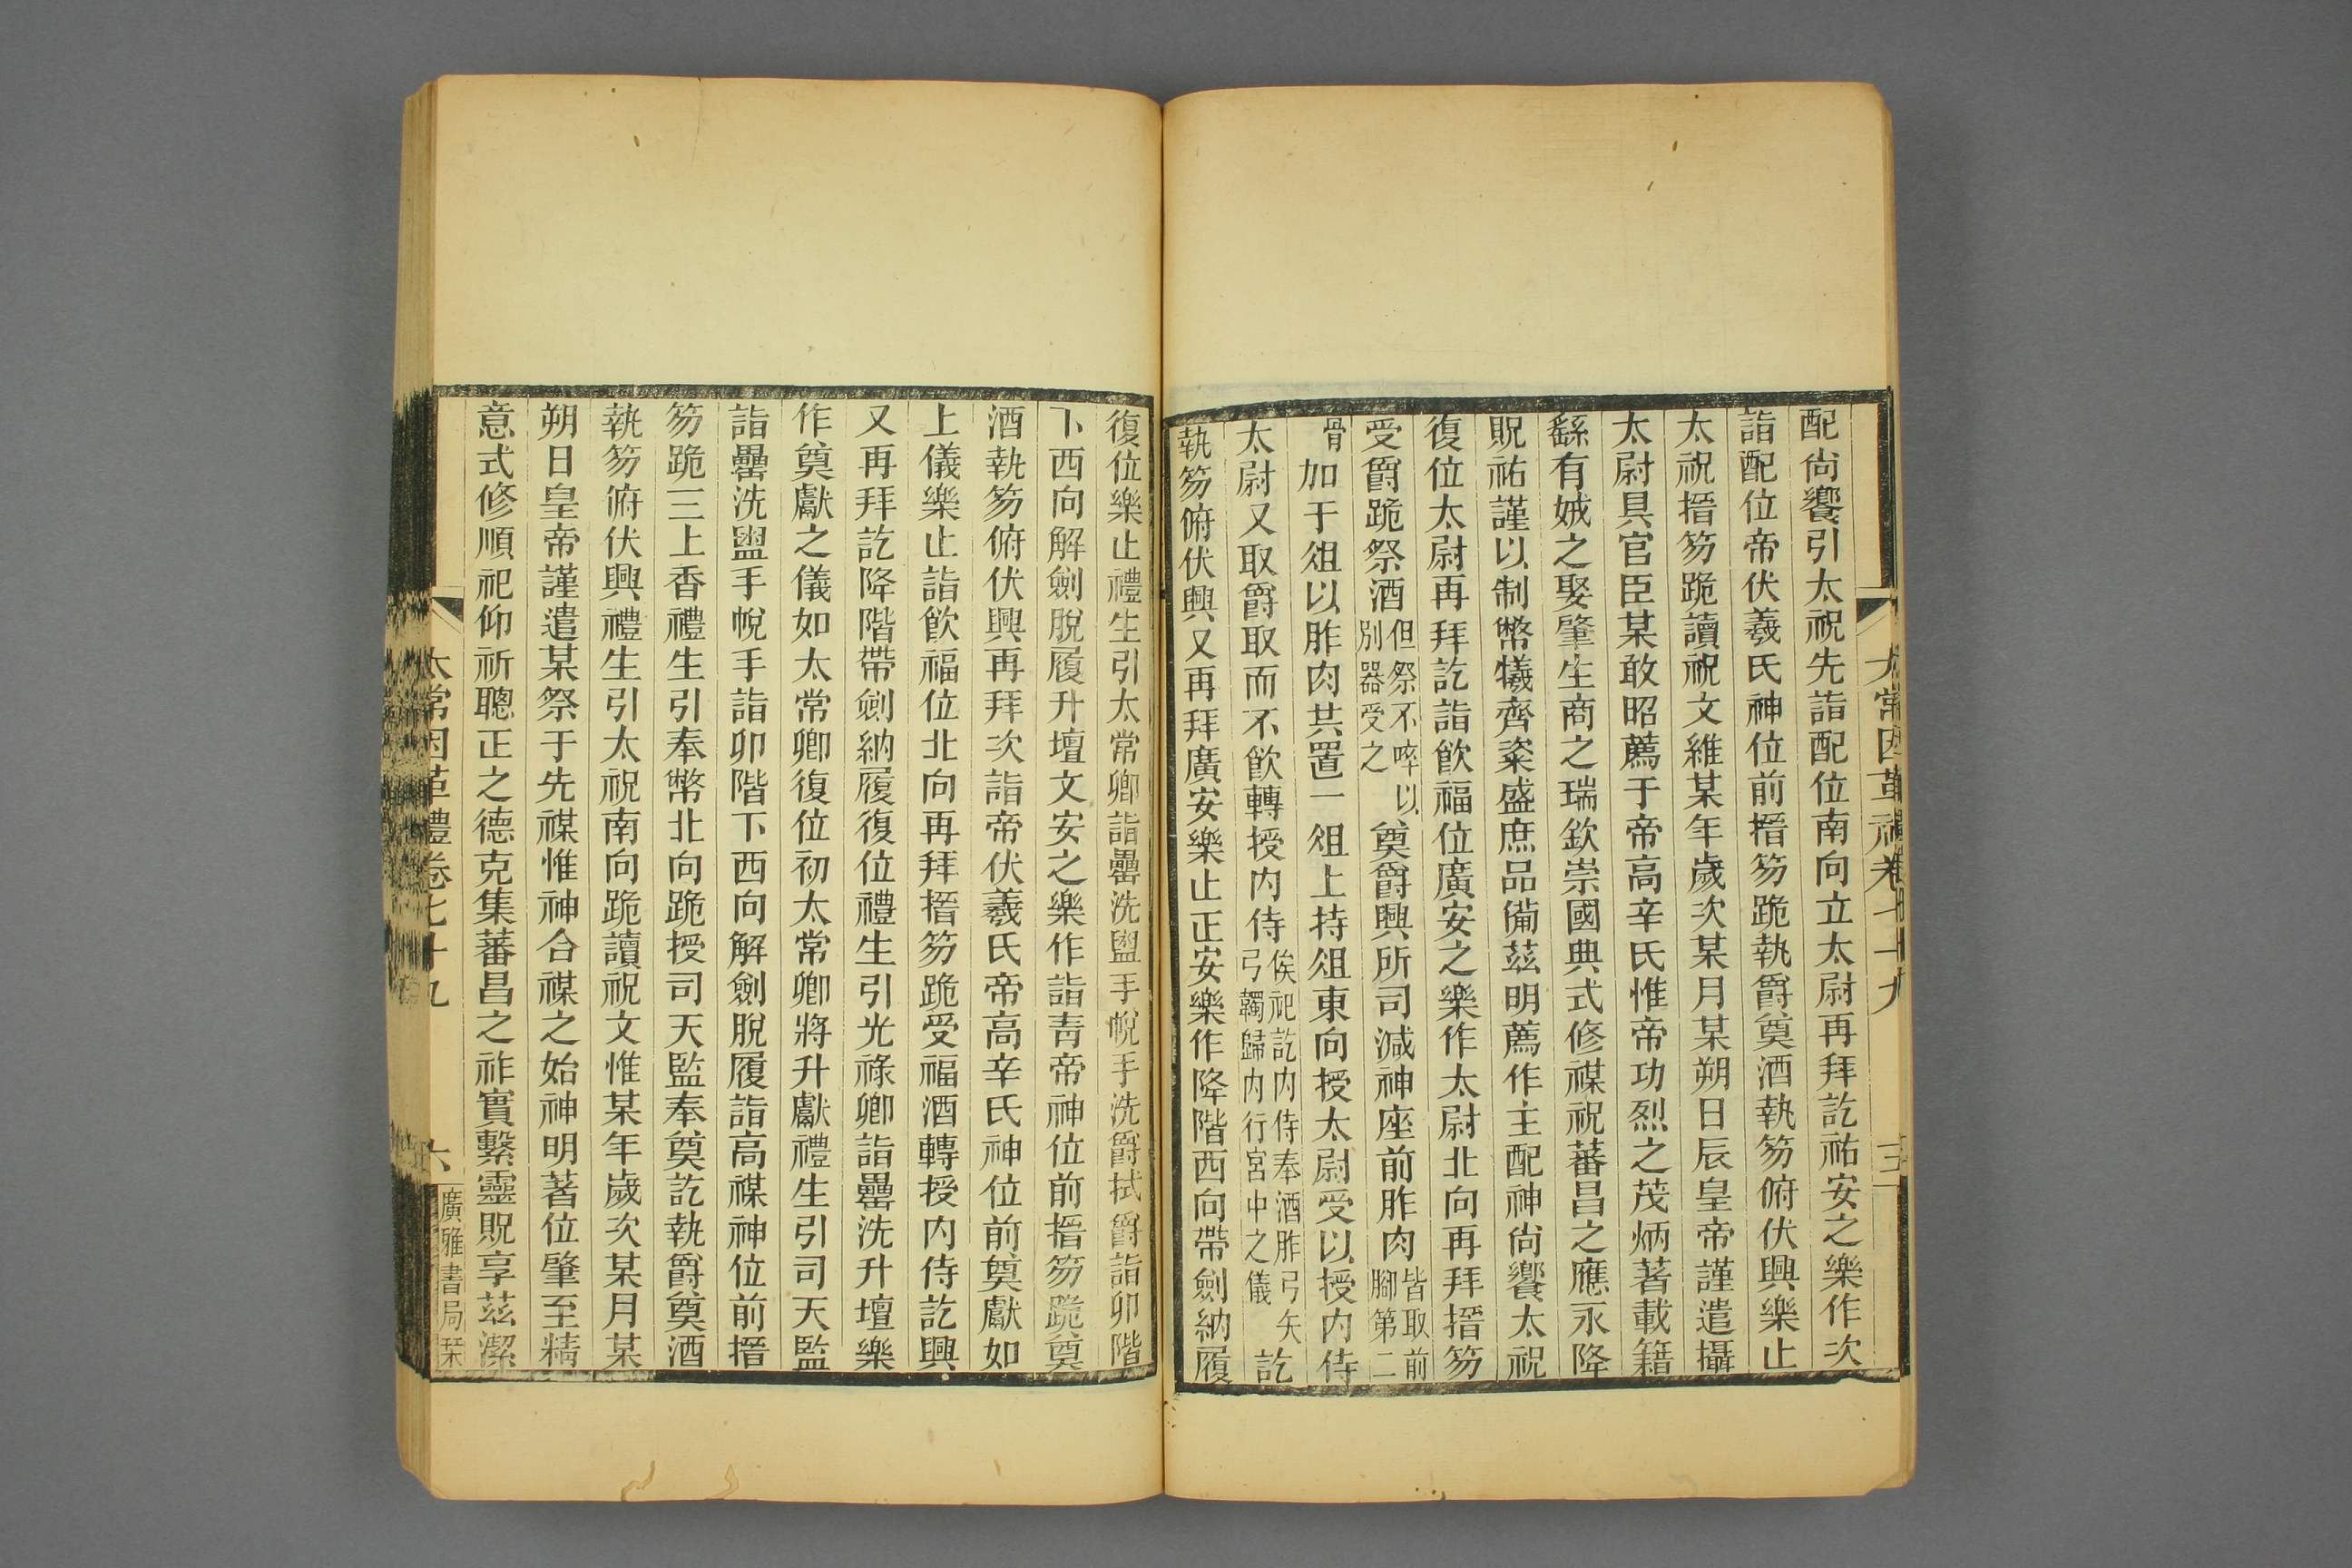 配尙饗引太祝先詣配位南向立太尉再拜訖祐安之樂作次
詣配位帝伏羲氏神位前搢笏跪執爵奠酒執笏俯伏興樂止
太祝搢笏跪讀祝文維某年歲次某月某朔日辰皇帝謹遣攝
太尉具官臣某敢昭薦于帝高辛氏惟帝功烈之茂炳著載籍
繇有娀之娶肇生商之瑞欽崇國典式修禖祝蕃昌之應永降
貺祐謹以制幣犧齊粢盛庶品備茲明薦作主配神尙饗太祝
復位太尉再拜訖詣飮福位廣安之樂作太尉北向再拜搢笏
受爵跪祭酒但祭不啐以別器受之奠爵興所司減神座前胙肉皆取前腳第二
骨加于俎以胙肉共置一俎上持俎東向授太尉受以授内侍
太尉又取爵取而不飮轉授内侍俟祀訖内侍奉酒胙弓矢弓韣歸内行宮中之儀訖
執笏俯伏興又再拜廣安樂止正安樂作降階西向帶劍納履
復位樂止禮生引太常卿詣罍洗盥手帨手洗爵拭爵詣卯階
下西向解劍脫履升壇文安之樂作詣青帝神位前搢笏跪奠
酒執笏俯伏興再拜次詣帝伏羲氏帝高辛氏神位前奠獻如
上儀樂止詣飮福位北向再拜搢笏跪受福酒轉授内侍訖興
又再拜訖降階帶劍納履復位禮生引光祿卿詣罍洗升壇樂
作奠獻之儀如太常卿復位初太常卿將升獻禮生引司天監
詣罍洗盥手帨手詣卯階下西向解劍脫履詣高禖神位前搢
笏跪三上香禮生引奉幣北向跪授司天監奉奠訖執爵奠酒
執笏俯伏興禮生引太祝南向跪讀祝文惟某年歲次某月某
朔日皇帝謹遣某祭于先禖惟神合禖之始神明著位肇至精
意式修順祀仰祈聰正之德克集蕃昌之祚實繫靈貺享茲潔
太常因革禮卷七十九
六
廣雅書局栞